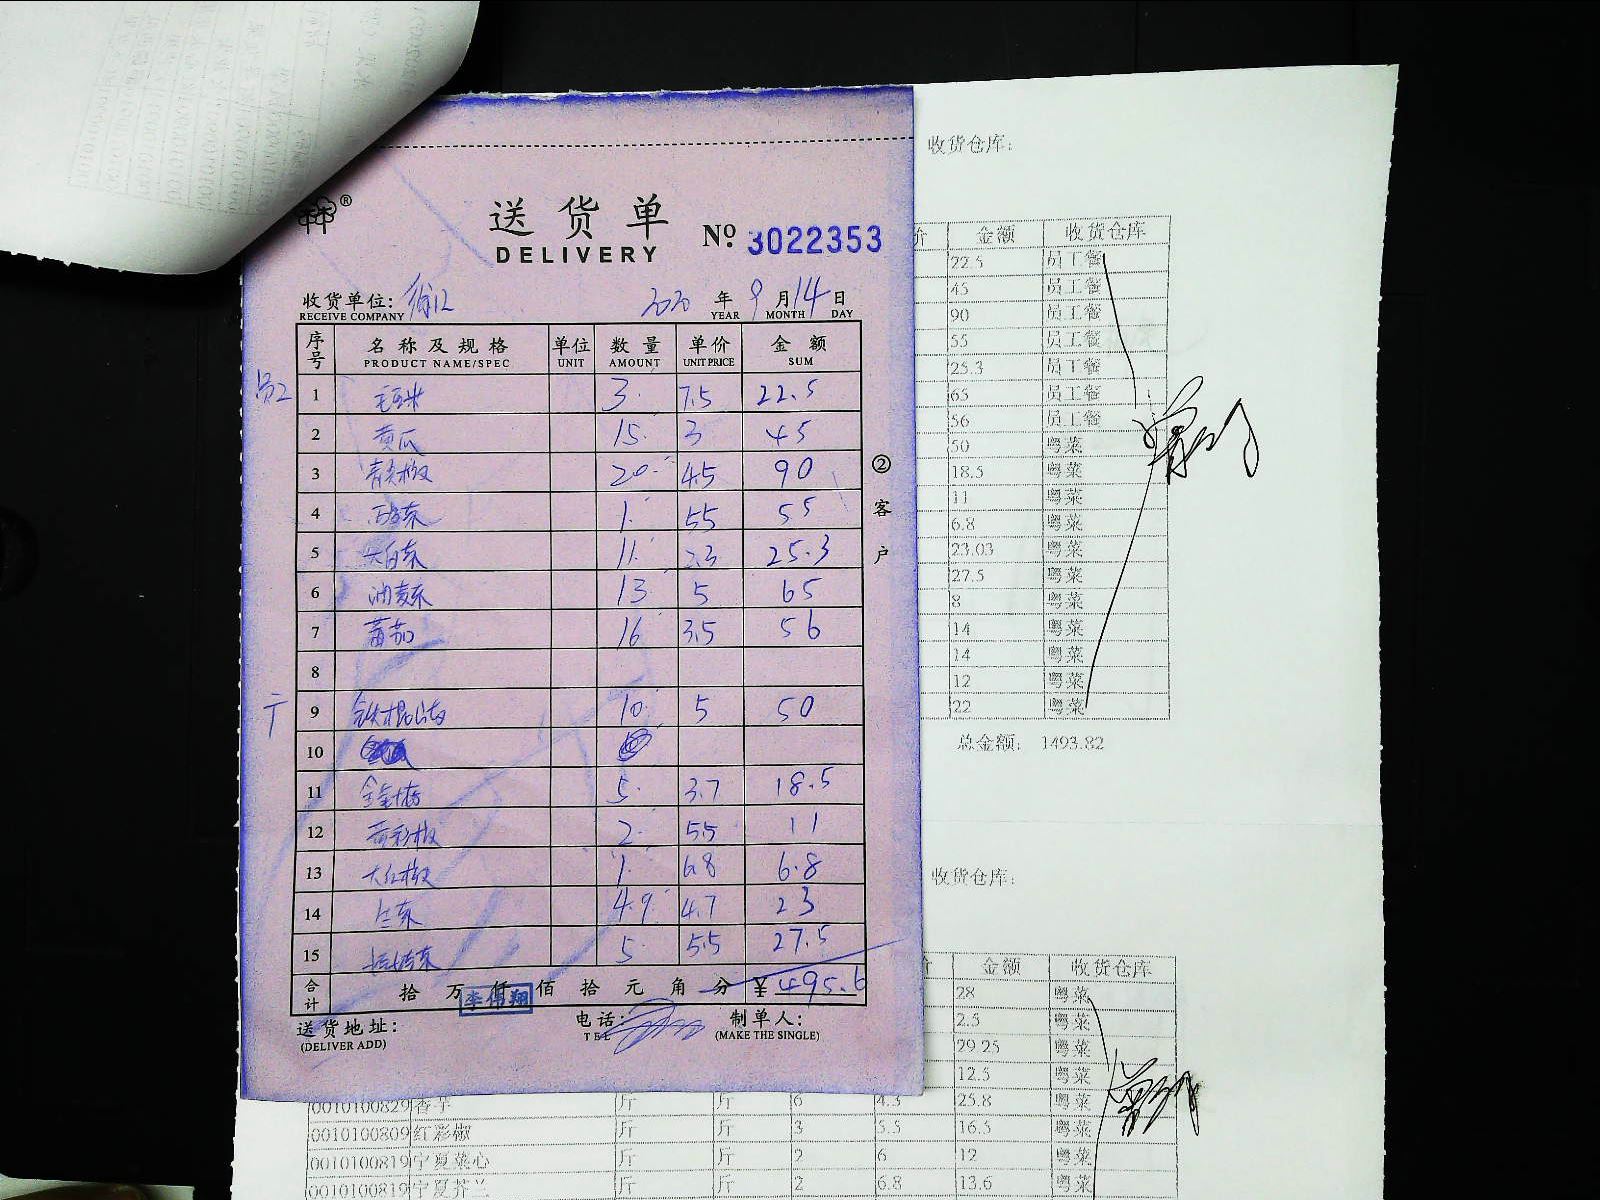 送货单
DELIVERY
№ 3022353
收货单位:
RECEIVE COMPANY
2020 年 9 月 14 日
YEAR MONTH DAY
序号 名称及规格 单位 数量 单价 金额
PRODUCT NAME/SPEC UNIT AMOUNT UNIT PRICE SUM
1 毛豆米 3 7.5 22.5
2 黄瓜 15 3 45
3 青尖椒 20 4.5 90
4 1 55 55
5 大白菜 11 2.3 25.3
6 油麦菜 13 5 65
7 蕃茄 16 3.5 56
8
9 铁棍山药 10 5 50
10
11 5 3.7 18.5
12 2 5.5 11
13 大红椒 1 6.8 6.8
14 4.9 4.7 23
15 5 5.5 27.5
合计 拾 万 仟 佰 拾 元 角 分 ¥ 495.6
李伟翔
送货地址:
(DELIVER ADD)
电话:
TEL
制单人:
(MAKE THE SINGLE)
②客户
收货仓库:
价 金额 收货仓库
22.5 员工餐
45 员工餐
90 员工餐
55 员工餐
25.3 员工餐
65 员工餐
56 员工餐
50 粤菜
18.5 粤菜
11 粤菜
6.8 粤菜
23.03 粤菜
27.5 粤菜
8 粤菜
14 粤菜
14 粤菜
12 粤菜
22 粤菜
总金额: 1493.82
收货仓库:
价 金额 收货仓库
28 粤菜
2.5 粤菜
29.25 粤菜
12.5 粤菜
0010100829 香芋 斤 斤 6 4.3 25.8 粤菜
0010100809 红彩椒 斤 斤 3 5.5 16.5 粤菜
0010100819 宁夏菜心 斤 斤 2 6 12 粤菜
0010100819 宁夏芥兰 斤 斤 2 6.8 13.6 粤菜